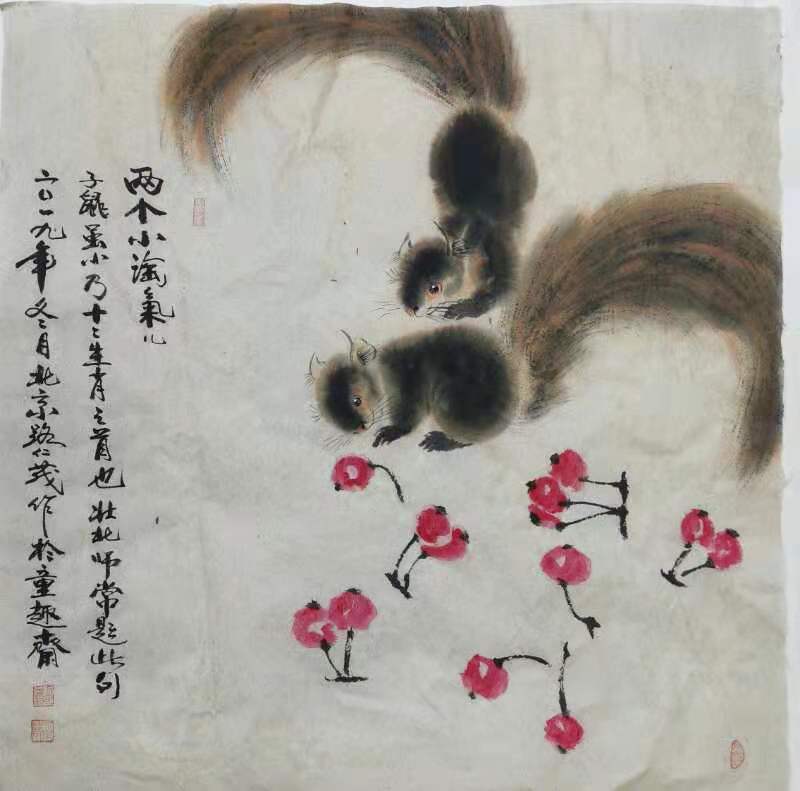 两个小淘氣儿
子鼠虽小乃十二生肖之首也壮北师常题此句
二〇一九年冬月北京路仁茂作於童趣齋